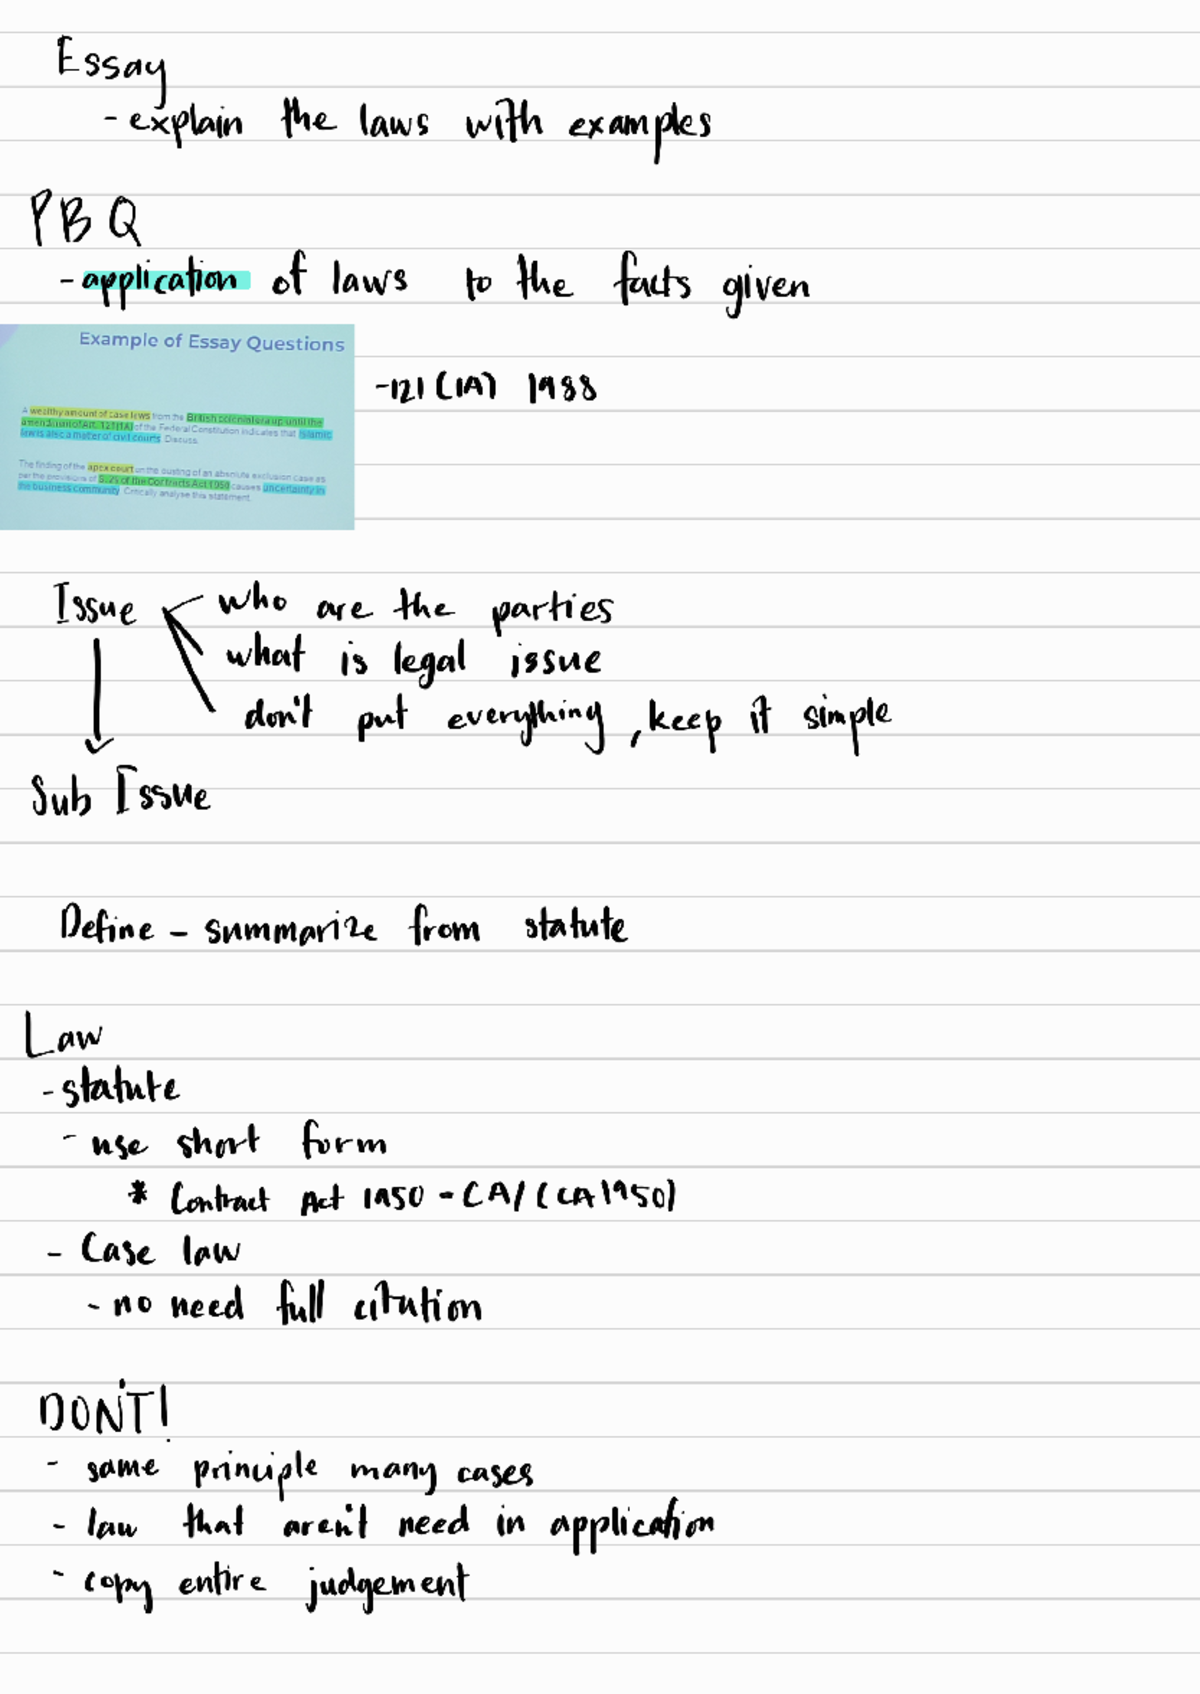 Essay
- explain the laws with examples
PBQ
- application of laws to the facts given
Example of Essay Questions
A wealthy amount of case laws from the British colonial era up until the
amendment of Art. 121(1A) of the Federal Constitution indicates that Islamic
law is also a matter of civil courts. Discuss.
The finding of the apex court on the ousting of an absolute exclusion case as
per the provisions of S. 29 of the Contracts Act 1950 causes uncertainty in
the business community. Critically analyse this statement.
-121 (1A) 1988
Issue
who are the parties
what is legal issue
don't put everything, keep it simple
Sub Issue
Define - summarize from statute
Law
- statute
- use short form
* Contract Act 1950 - CA/(CA1950)
- Case law
- no need full citation
DON'T!
- same principle many cases
- law that aren't need in application
- copy entire judgement